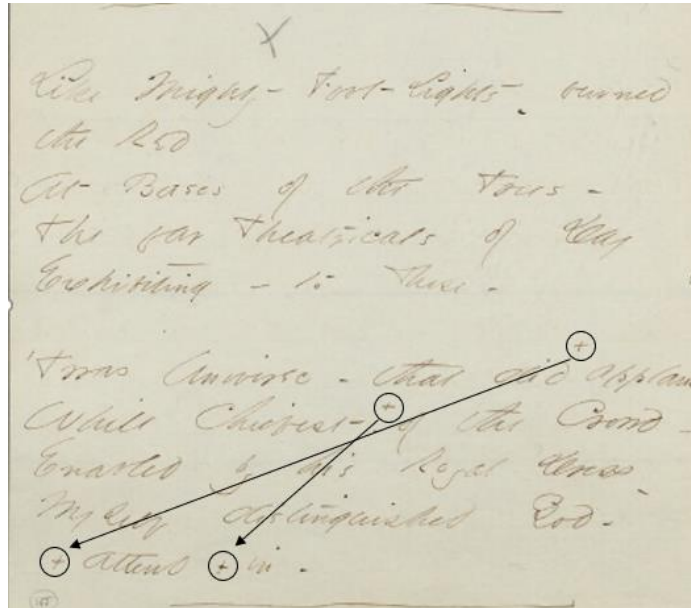 Like Mighty - Foot-Lights - burned
the Red
At Bases of the Trees -
The far Theatricals of Day
Exhibiting - to These -
'Twas Universe - that + did applau
While Chiefest - + of the Crowd -
Enabled by his Royal Dress
Myself distinguished God -
+ attend + in -